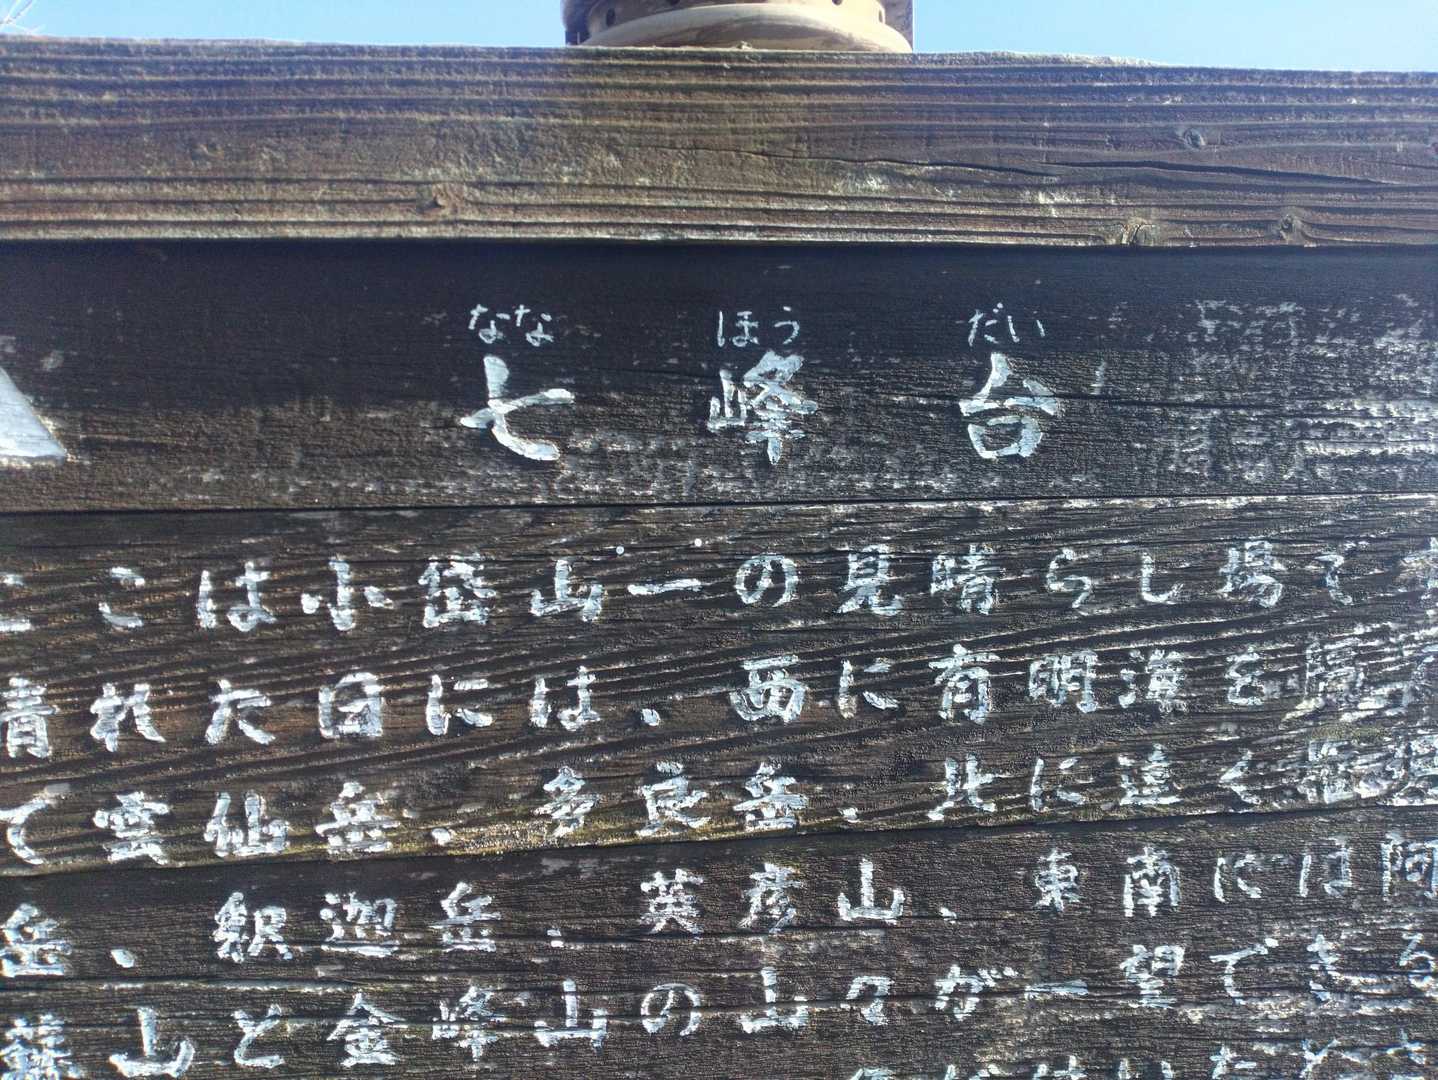 なな ほう だい
七峰台
ここは小岱山一の見晴らし場で
晴れた日には、西に有明海を隔
て雲仙岳、多良岳、北に遠く
岳、釈迦岳、英彦山、東南には阿
山と金峰山の山々が一望できる